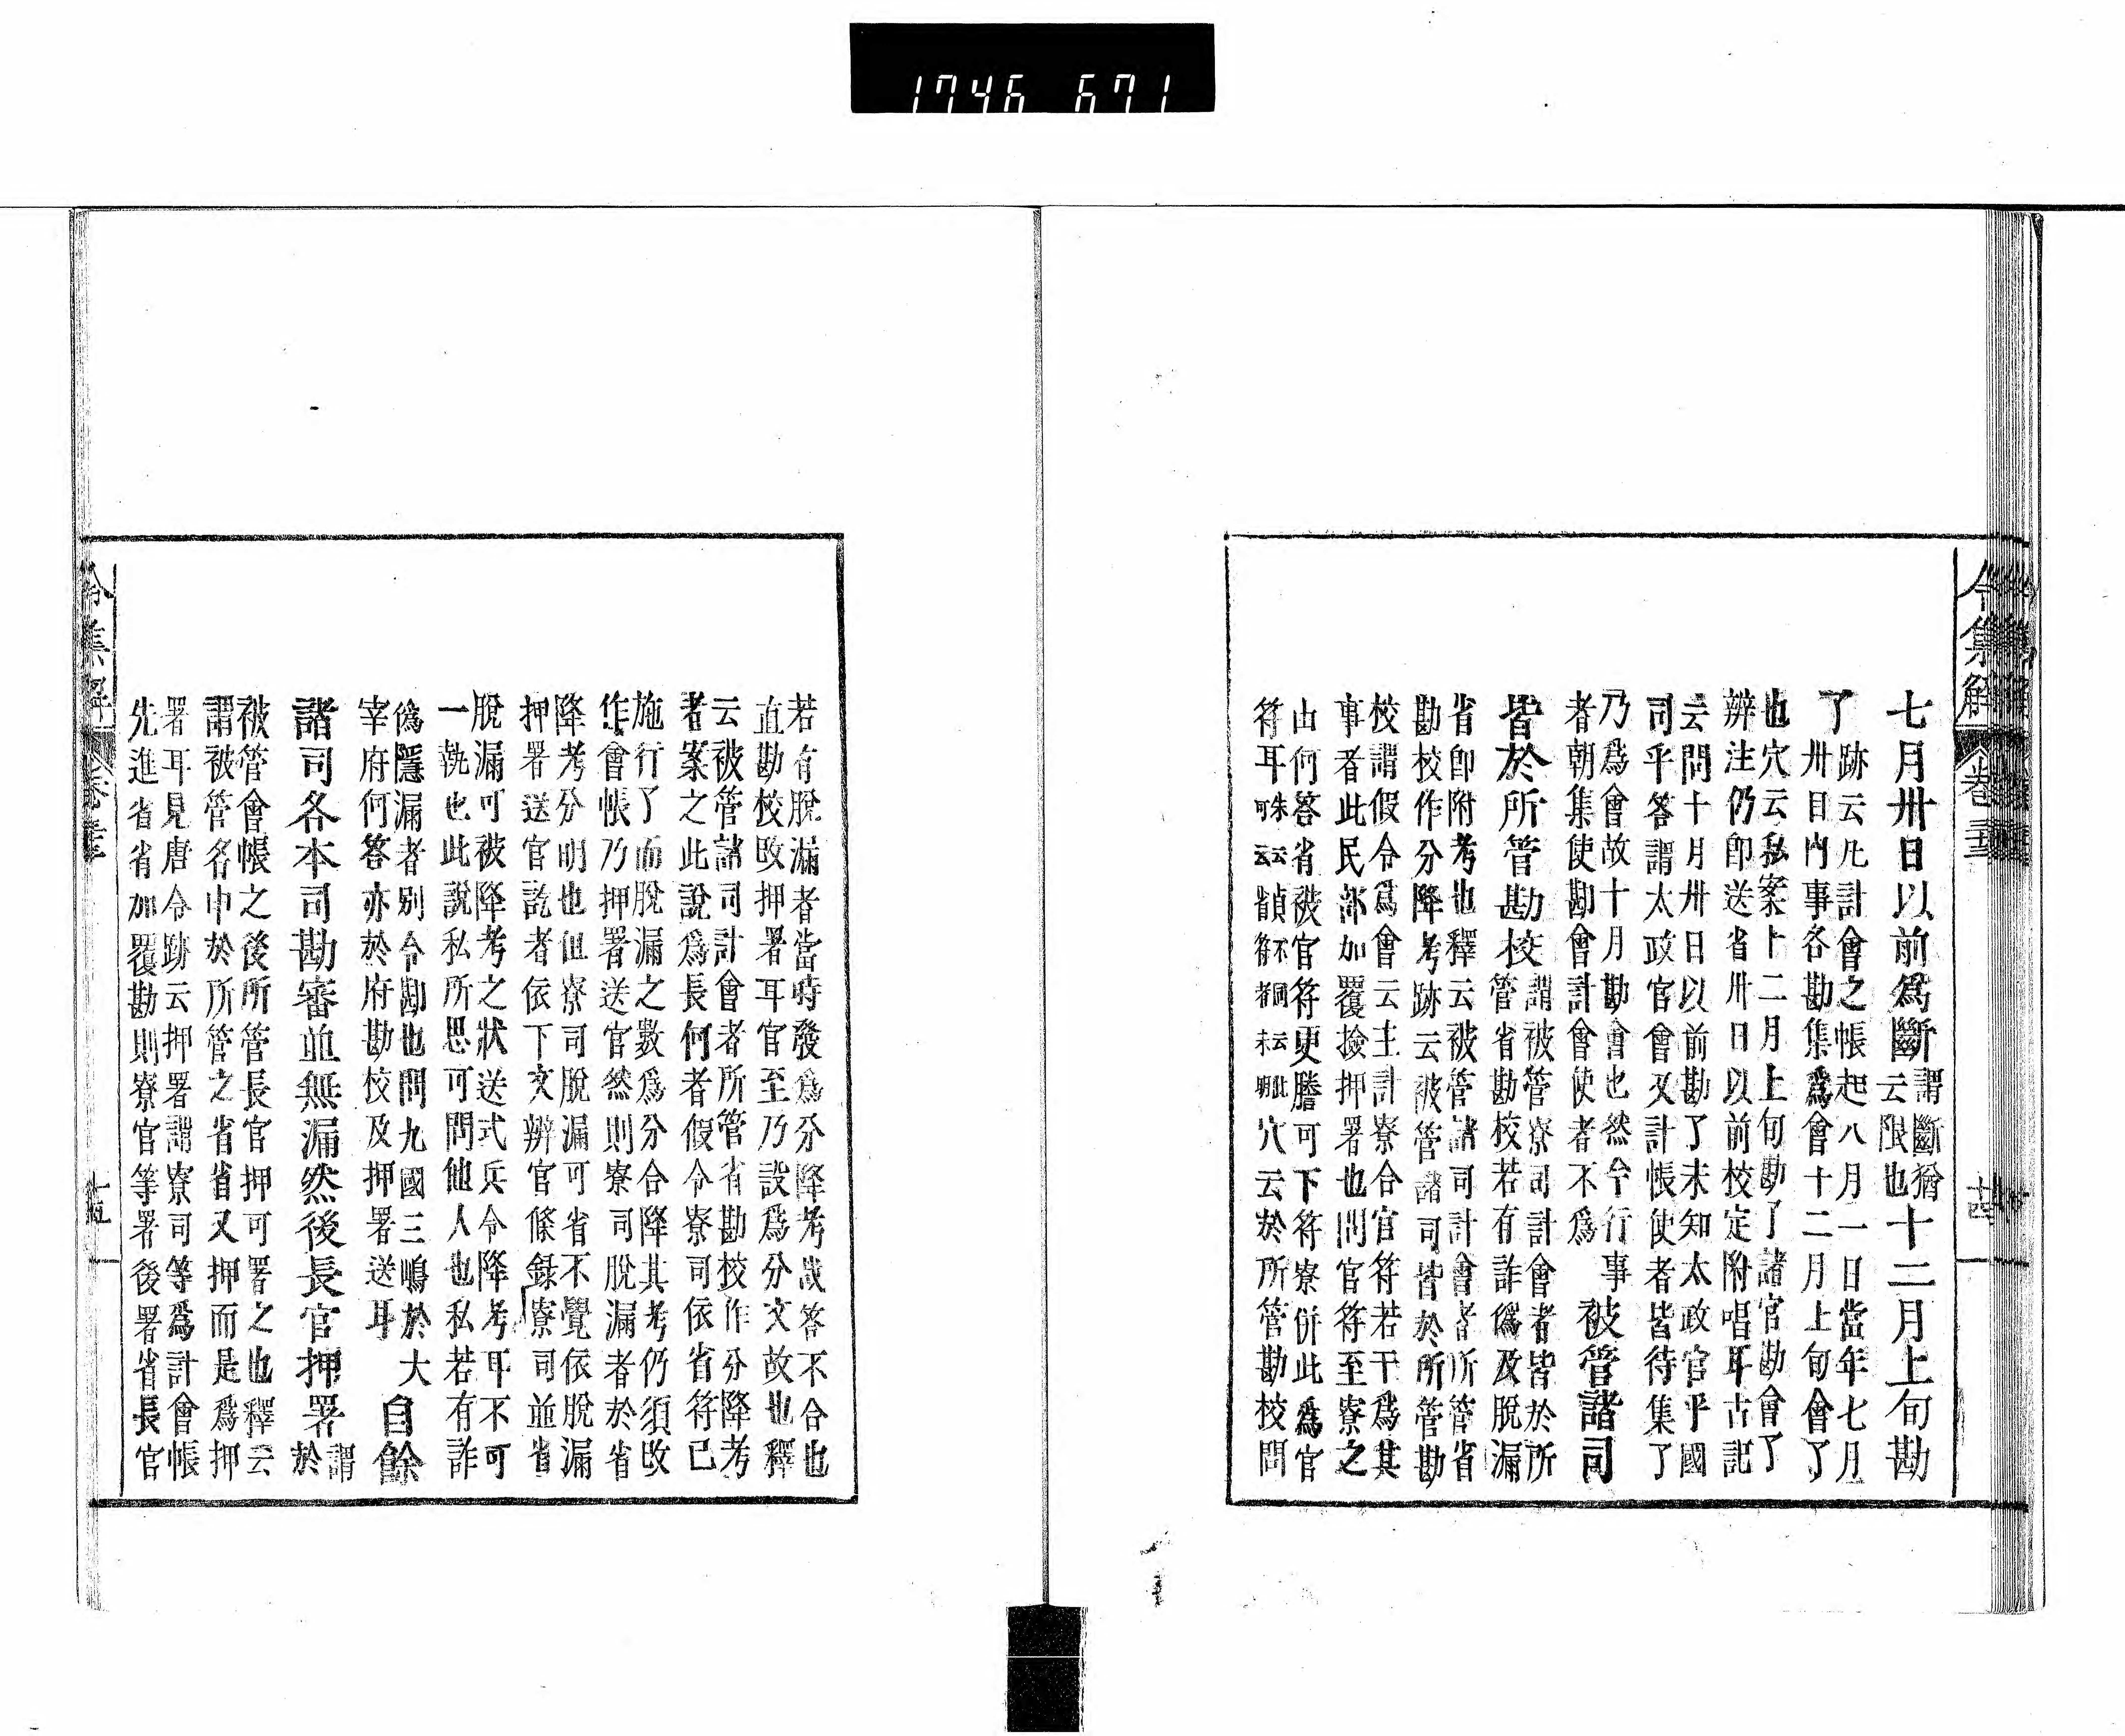 1746 671
令集解 卷 十四
七月卅日以前爲斷謂斷猶云限也十二月上旬勘
了跡云凡計會之帳起八月一日當年七月
卅日內事各勘集爲會十二月上旬會了
也穴云私案十二月上旬勘了諸官勘會了
辨注仍卽送省卅日以前校定附唱耳古記
云問十月卅日以前勘了未知太政官乎國
司乎答謂太政官會又計帳使者皆待集了
乃爲會故十月勘會也然今行事
者朝集使勘會計會使者不爲
被管諸司
皆於所管勘校謂被管寮司計會者皆於所
管省勘校若有詐僞及脫漏
省卽附考也釋云被管諸司計會者所管省
勘校作分降考跡云被管諸司皆於所管勘
校謂假令爲會云主計寮合官符若干爲其
事者此民部加覆撿押署也問官符至寮之
由何答省被官符更謄可下符寮併此爲官
符耳
穴云於所管勘校問
若有脫漏者當時發爲分降考哉答不合也
直勘校改押署耳官至乃設爲分文故也釋
云被管諸司計會者所管省勘校作分降考
者案之此說爲長何者假令寮司依省符已
施行了而脫漏之數爲分合降其考仍須改
作會帳乃押署送官然則寮司脫漏者於省
降考分明也但寮司脫漏可省不覺依脫漏
押署送官訖者依下文辨官條錄寮司並省
脫漏可被降考之狀送式兵令降考耳不可
一執也此說私所思可問他人也私若有詐
僞隱漏者別令勘也問九國三嶋於大
宰府何答亦於府勘校及押署送耳
自餘
諸司各本司勘審並無漏然後長官押署謂
於
被管會帳之後所管長官押可署之也釋云
謂被管名申於所管之省省又押而是爲押
署耳見唐令跡云押署謂寮司等爲計會帳
先進省省加覆勘則寮官等署後署省長官
令集解 卷 十五